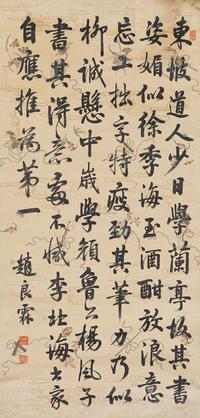 東坡道人少日學蘭亭故其書
姿媚似徐季海至酒酣放浪意
忘工拙字特瘦勁其筆力乃似
柳誠懸中歲學顏魯公楊風子
書其得意處不減李北海書家
自應推為第一
趙良霖